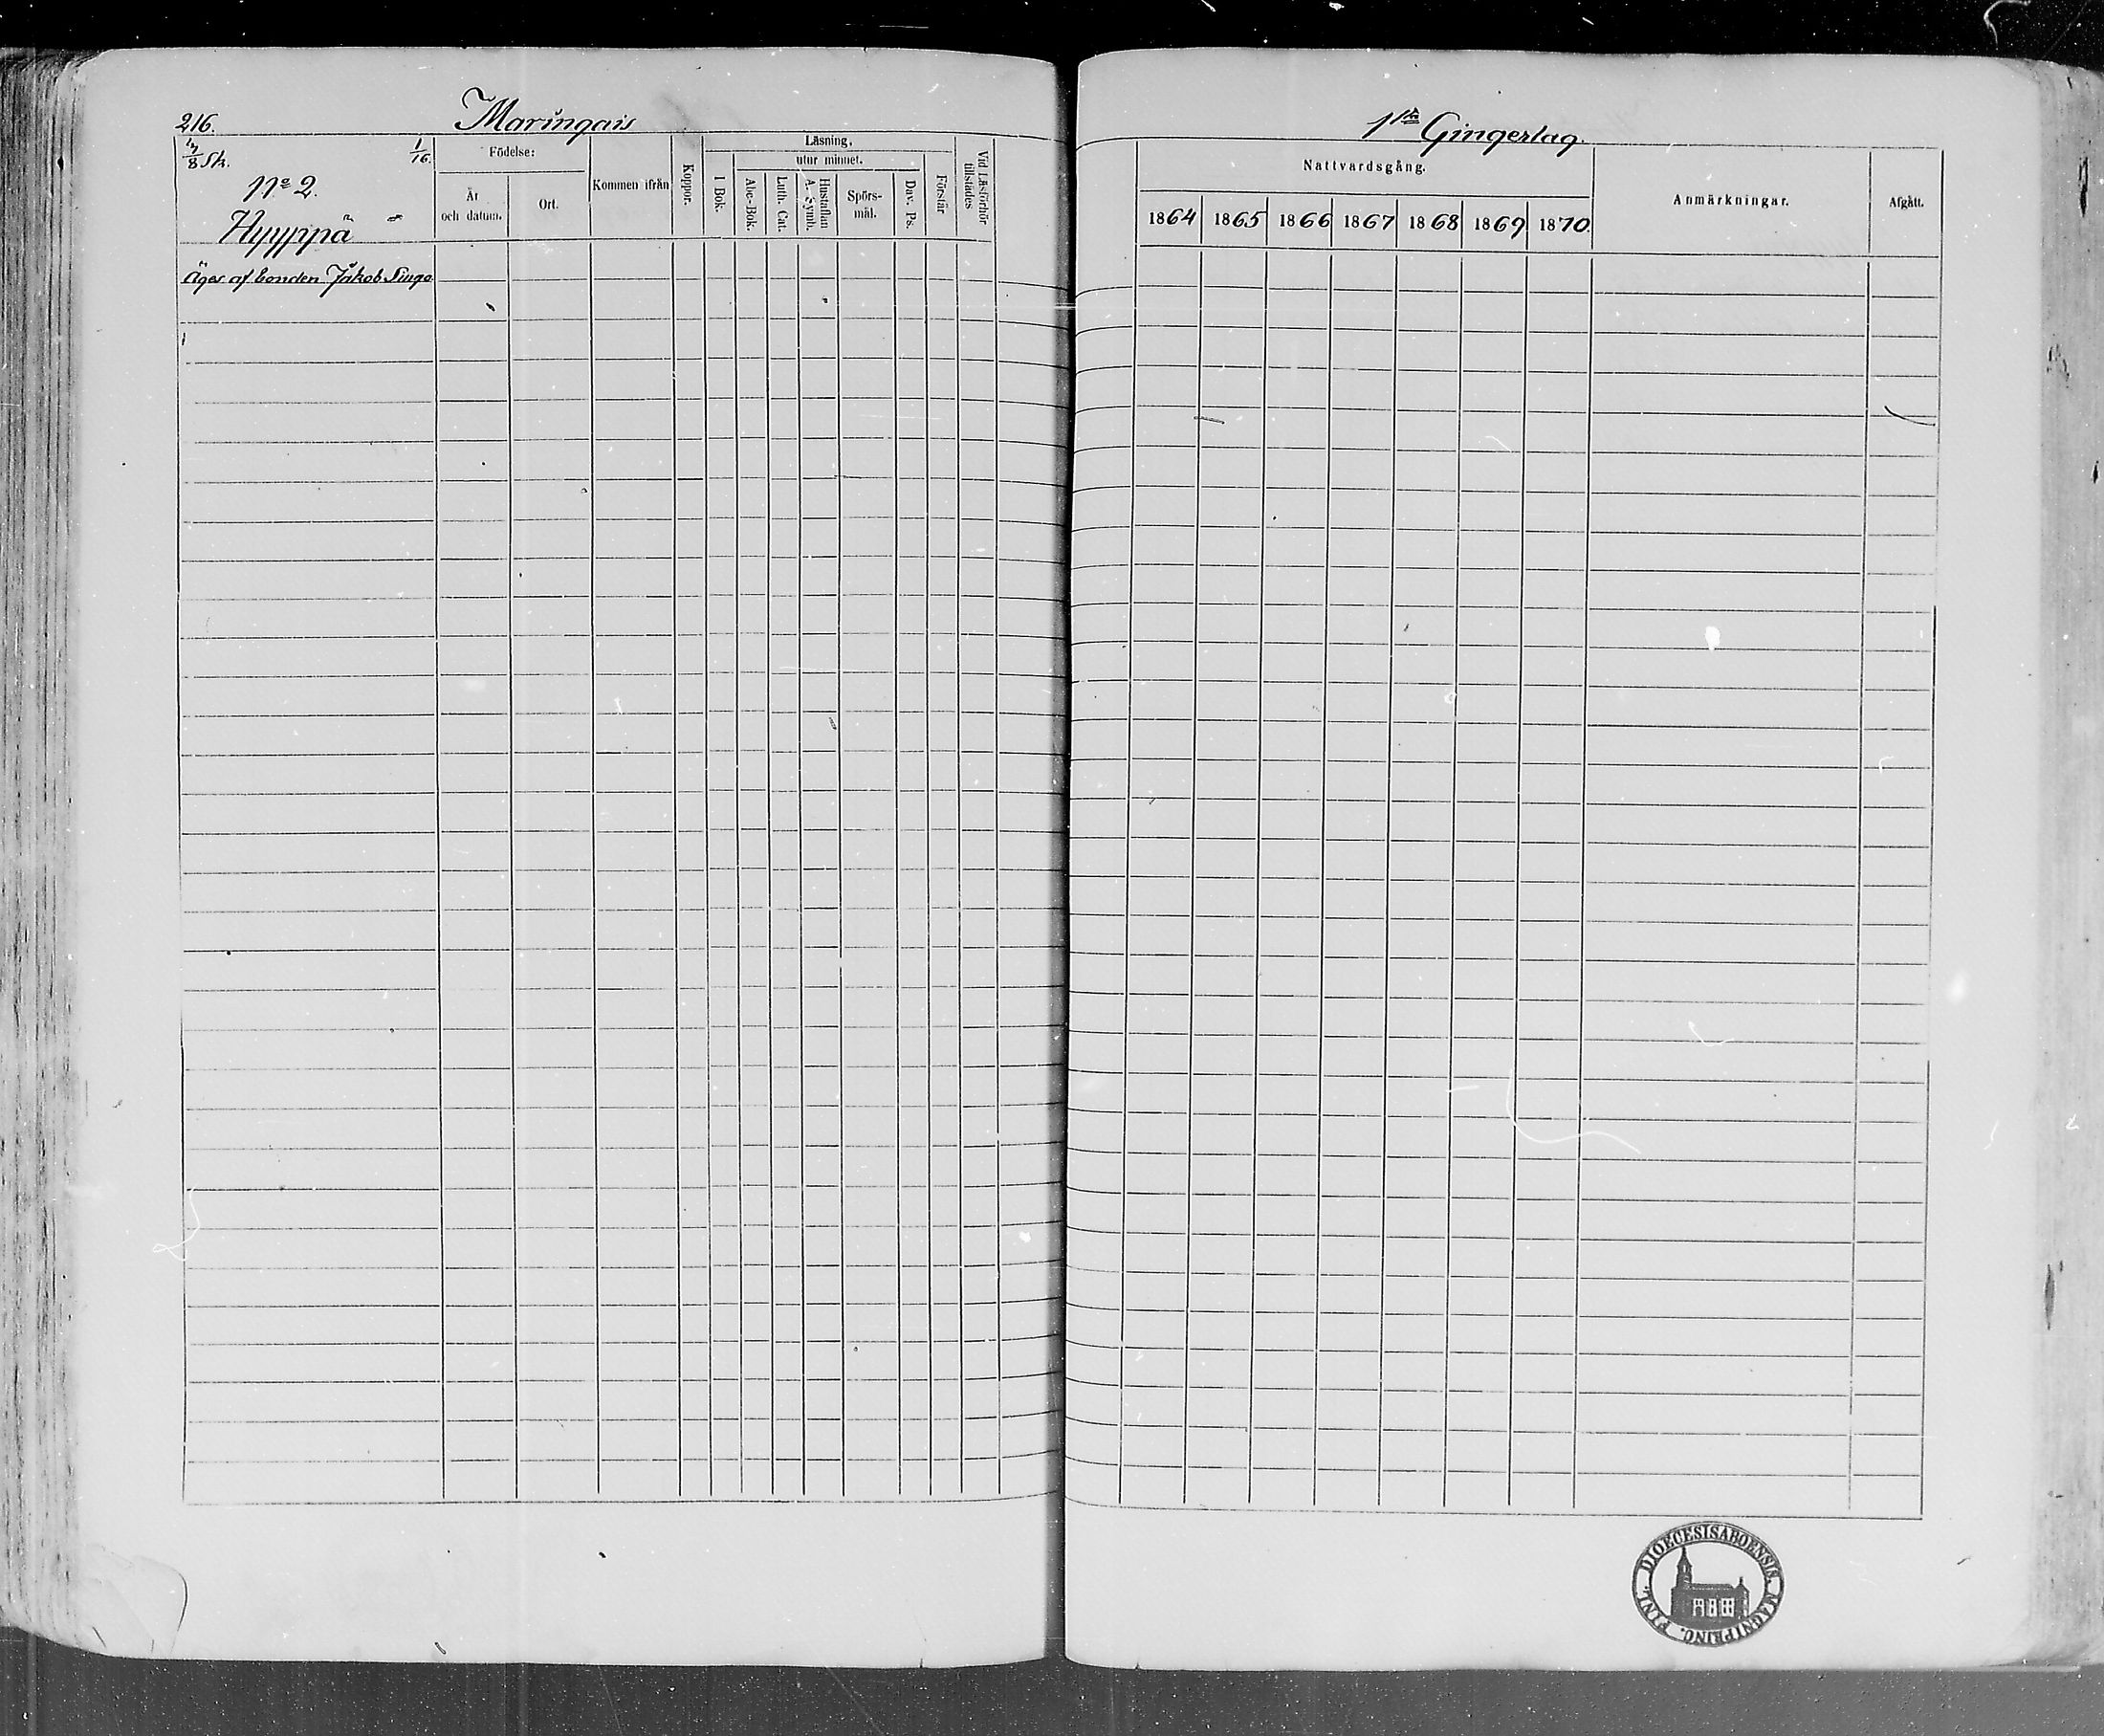 216. Maringais
7/8 Sk. 1/16.
N:o 2.
Hyyppä
Äges af bonden Jakob Pingo
Födelse:
År
och datum.
Ort.
Kommen ifrån
Koppor.
Läsning.
utur minnet.
I Bok.
Abc-Bok.
Luth. Cat.
Hustaflan
A. Symb.
Spörs-
mål.
Dav. Ps.
Förstår
Vid Läsförhör
tillstädes
1sta Gingerlag.
Nattvardsgång.
1864 1865 1866 1867 1868 1869 1870
Anmärkningar.
Afgått.
DIOECESIS ABOENSIS. MAGNI PRINC. FINL.